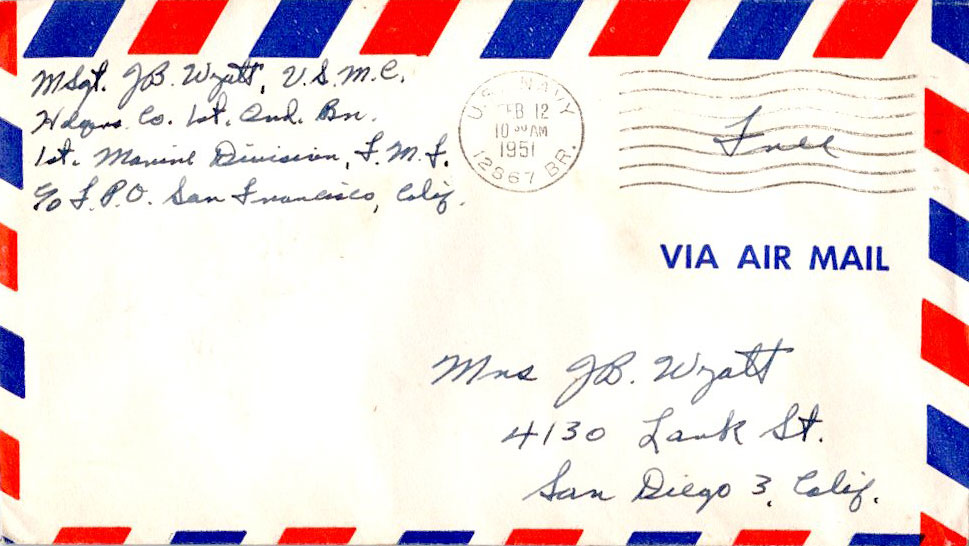 MSgt. JB. Wyatt, U.S.M.C.
Hdqrs. Co. 1st. Ord. Bn.
1st. Marine Division, F.M.F.
c/o F.P.O. San Francisco, Calif.
U.S. NAVY
FEB 12
10 30 AM
1951
12867 BR.
Free
VIA AIR MAIL
Mrs JB. Wyatt
4130 Lark St.
San Diego 3, Calif.